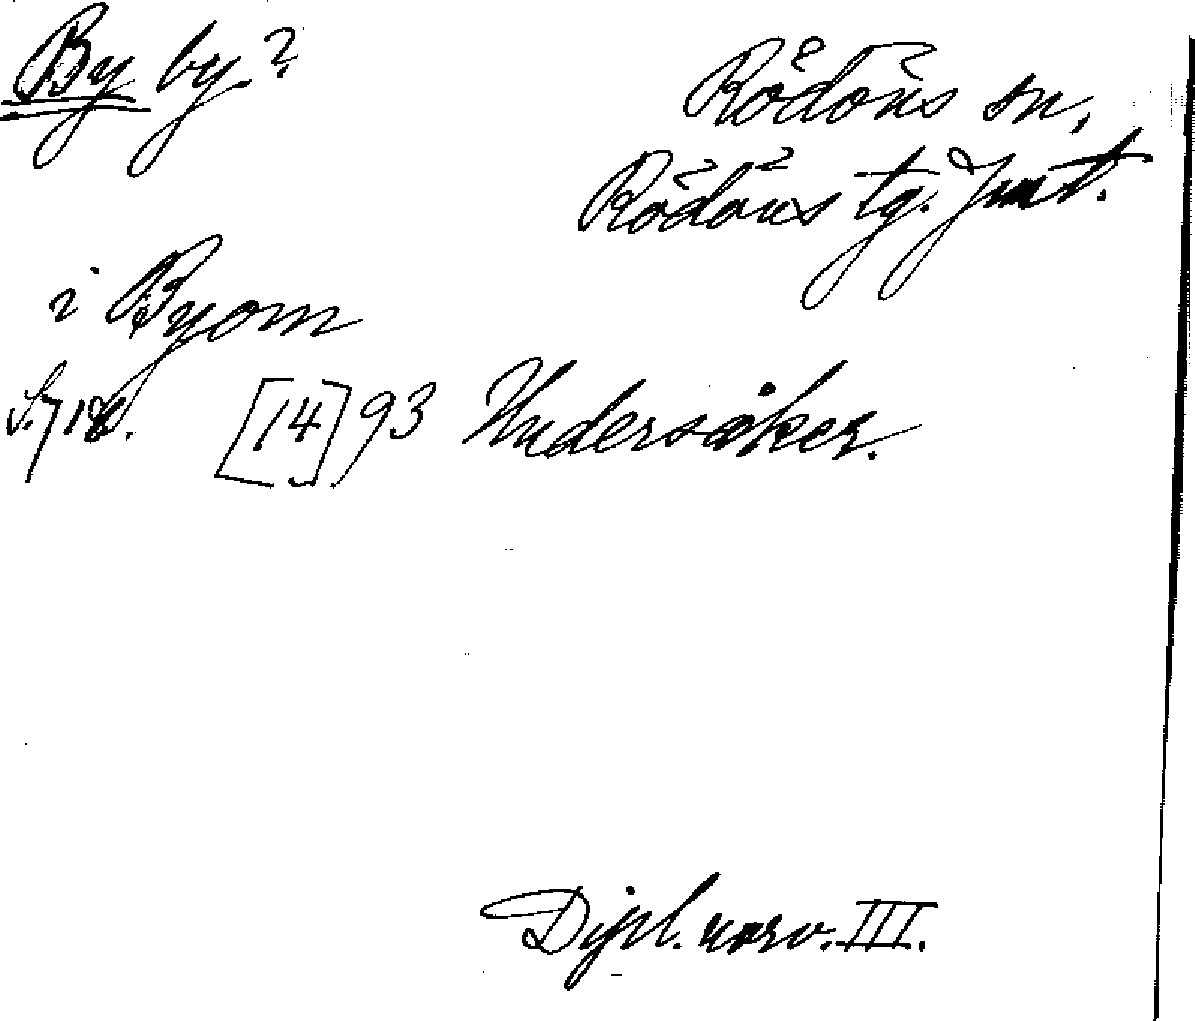 By by?
Rödöns sn,
Rödöns tg. Jmt.
i Byom
S. 718. [14]93 Undersåker.
Dipl. norv. III.